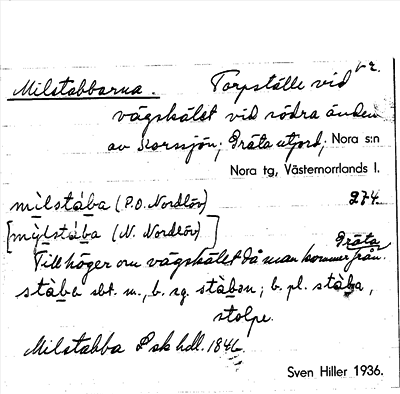 Milstabbarna. Torpställe vid
vägskälet vid södra änden
av Korssjön; Gräta utjord, Nora s:n
Nora tg, Västernorrlands l.
mìlstàba (P.O. Nordlöv) 274.
[mỳlstàba (N. Nordlöv)]
Till höger om vägskälet då man kommer från Gräta.
stàba sbt. m., b. sg. stàban; b. pl. stàba,
stolpe.
Milstabba P sk hdl. 1846
Sven Hiller 1936.